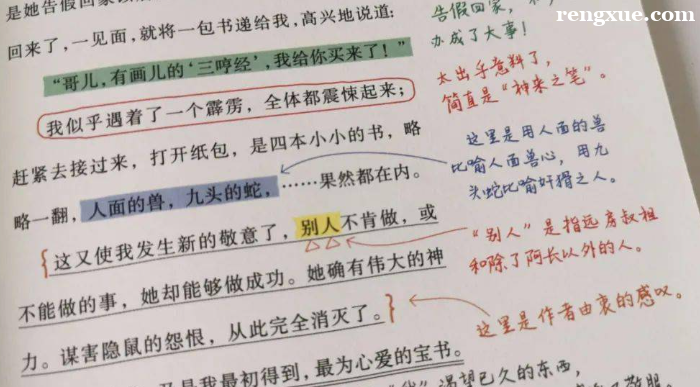 是她告假回家以
回来了，一见面，就将一包书递给我，高兴地说道：
“哥儿，有画儿的‘三哼经’，我给你买来了！”
我似乎遇着了一个霹雳，全体都震悚起来；
赶紧去接过来，打开纸包，是四本小小的书，略
略一翻，人面的兽，九头的蛇，……果然都在内。
这又使我发生新的敬意了，别人不肯做，或
不能做的事，她却能够做成功。她确有伟大的神
力。谋害隐鼠的怨恨，从此完全消灭了。
是我最初得到，最为心爱的宝书。
rengxue.com
告假回家，
办成了大事！
太出乎意料了，
简直是“神来之笔”。
这里是用人面的兽
比喻人面兽心，用九
头蛇比喻奸猾之人。
“别人”是指远房叔祖
和除了阿长以外的人。
这里是作者由衷的感叹。
渴望已久的东西，